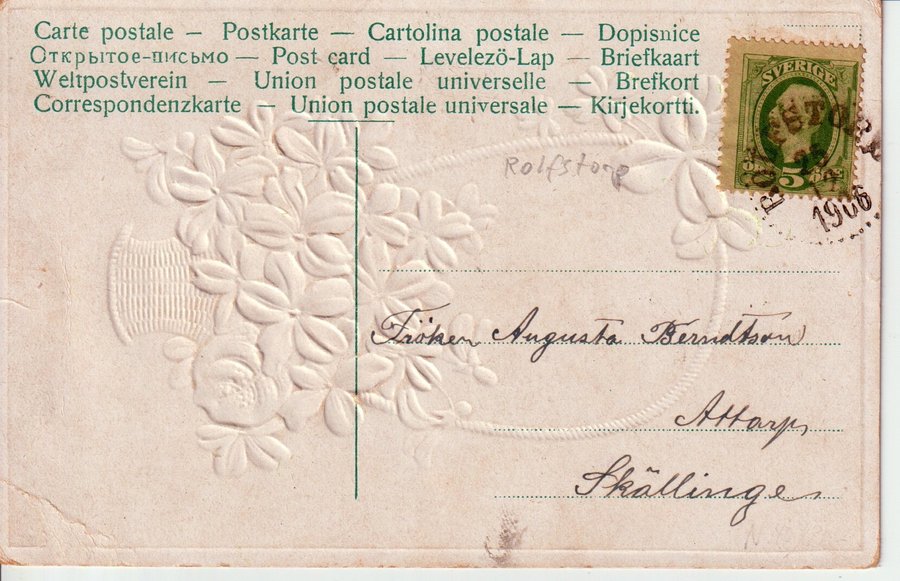 Carte postale – Postkarte – Cartolina postale – Dopisnice
Открытое-письмо – Post card – Levelezö-Lap – Briefkaart
Weltpostverein – Union postale universelle – Brefkort
Correspondenzkarte – Union postale universale – Kirjekortti.
SVERIGE
5
1906
Rolfstorp
Fröken Augusta Berndtson
Attarp
Skällinge